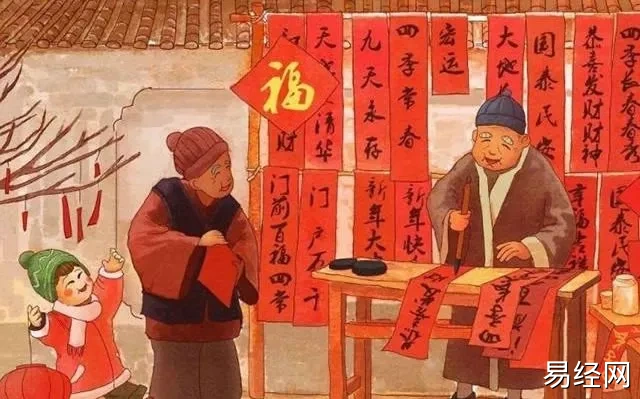 福
天
清华
九天永存
四季常春
宏运
大地
国泰民安
恭喜发财财神
四季长春
财
门前百福四常
门户万千
新年大
新年快
幸福
国泰民
恭喜发
四季
易经网